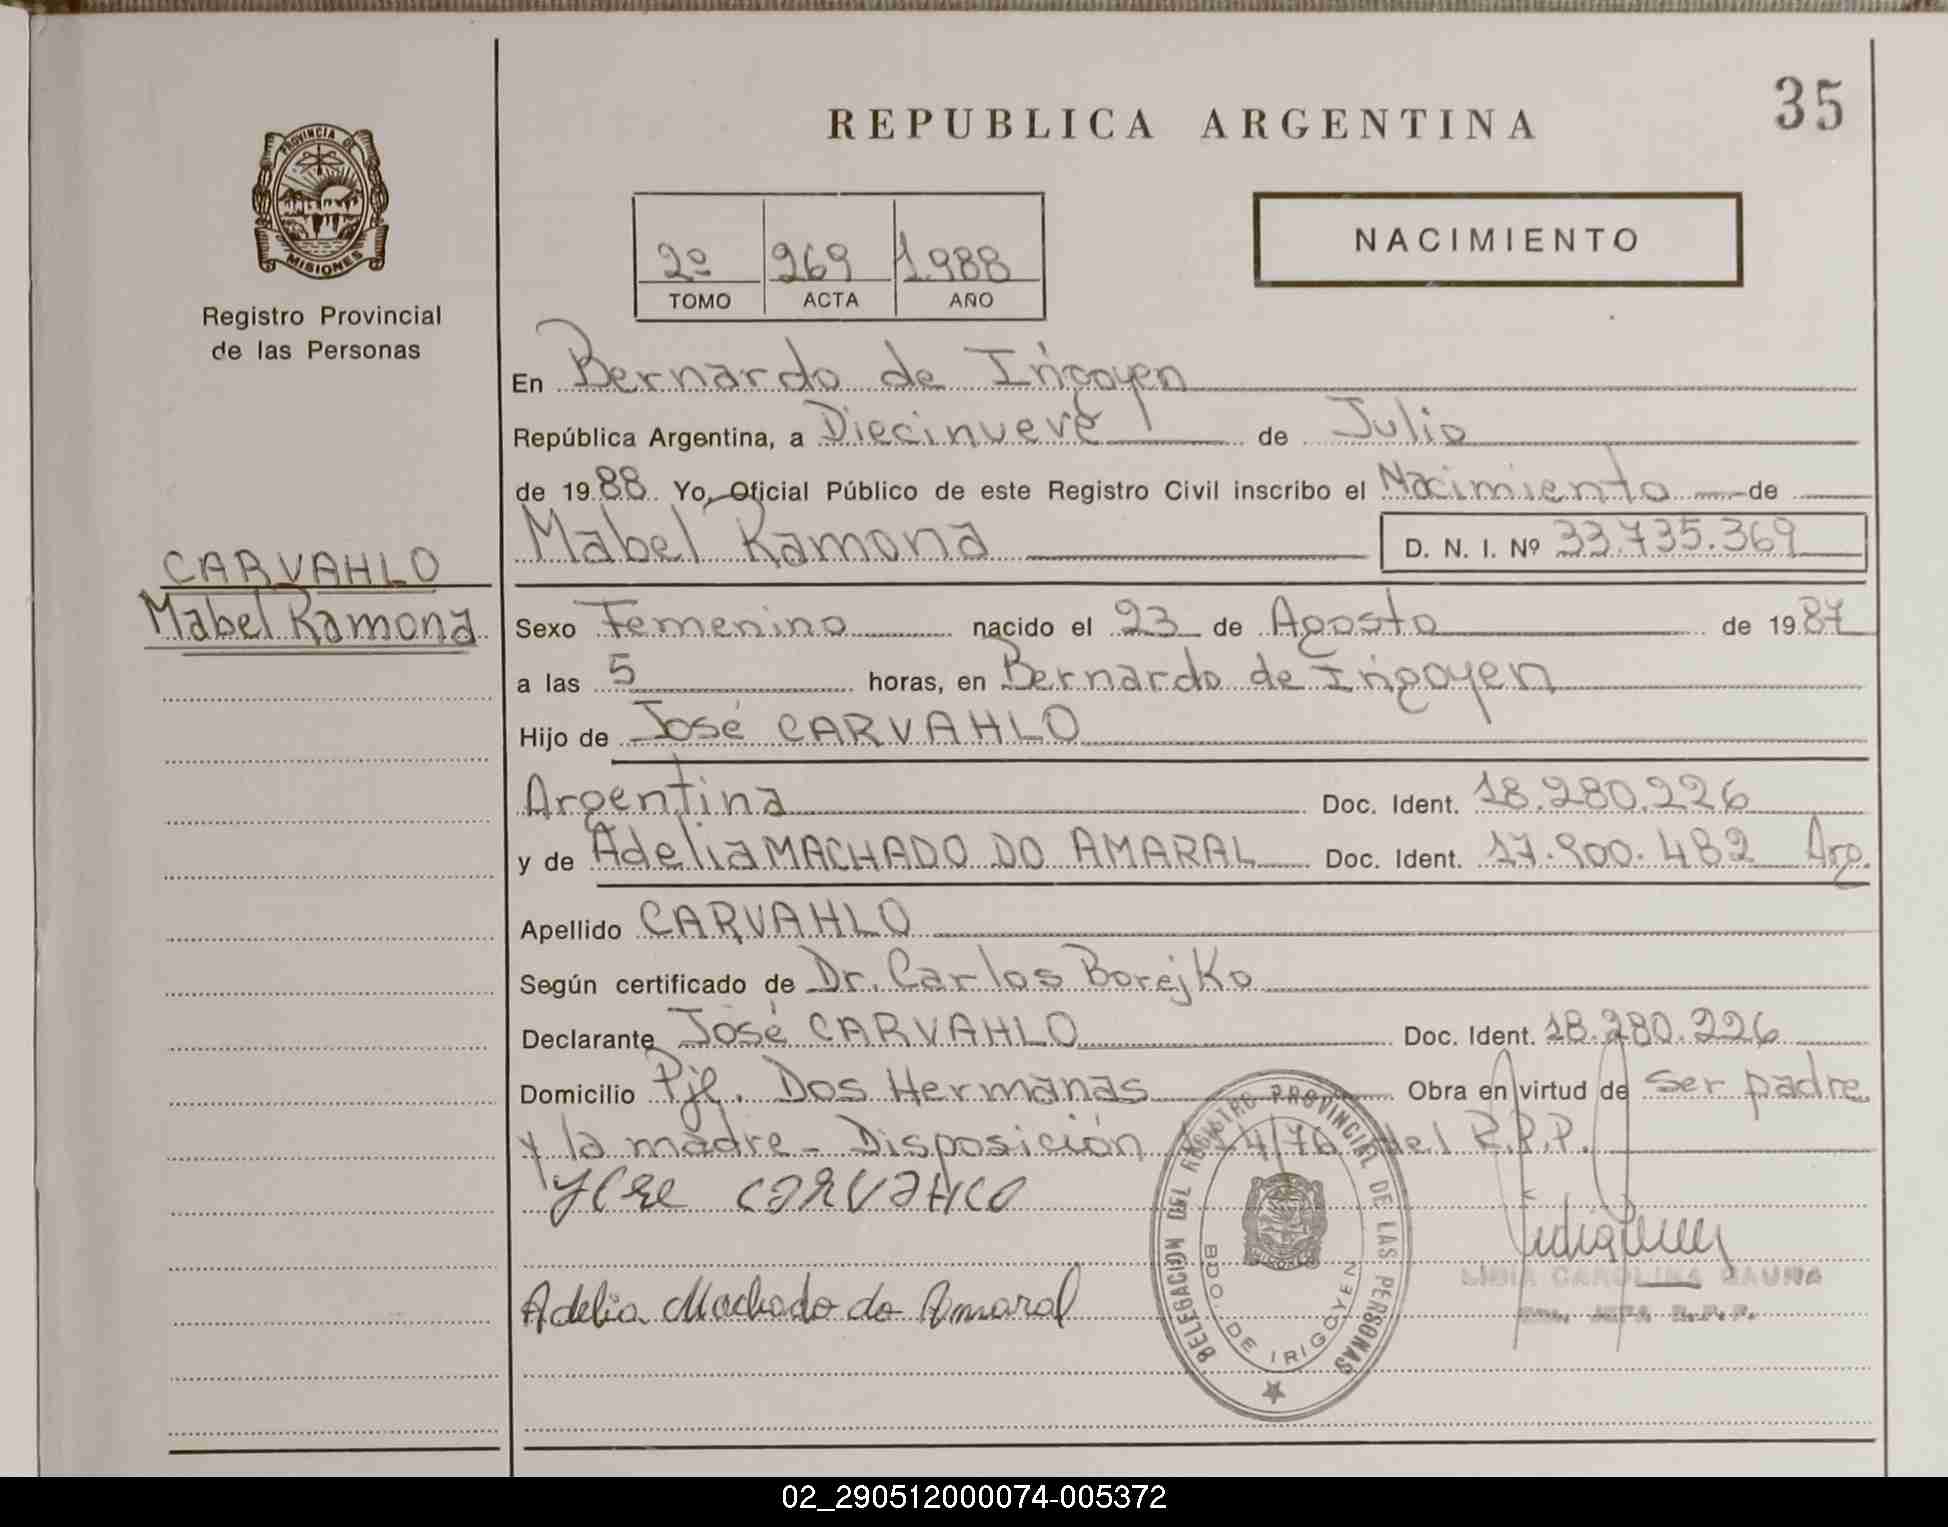 35
REPUBLICA ARGENTINA
PROVINCIA DE
MISIONES
Registro Provincial
de las Personas
2º 269 1.988
TOMO ACTA AÑO
NACIMIENTO
En Bernardo de Irigoyen
República Argentina, a Diecinueve de Julio
de 1988. Yo, Oficial Público de este Registro Civil inscribo el Nacimiento de
Mabel Ramona D. N. I. Nº 33.735.369
CARVAHLO
Mabel Ramona
Sexo Femenino nacido el 23 de Agosto de 1987
a las 5 horas, en Bernardo de Irigoyen
Hijo de José CARVAHLO
Argentina Doc. Ident. 18.280.226
y de Adelia MACHADO DO AMARAL Doc. Ident. 17.900.482 Arg.
Apellido CARVAHLO
Según certificado de Dr. Carlos Borejko
Declarante José CARVAHLO Doc. Ident. 18.280.226
Domicilio Pje. Dos Hermanas Obra en virtud de ser padre
y la madre - Disposición /76 del R.P.P.
CARVAHLO
Adelia Machado do Amaral
DELEGACION DEL REGISTRO PROVINCIAL DE LAS PERSONAS
BDO. DE IRIGOYEN
LIDIA CAROLINA
R.P.P.
02_290512000074-005372